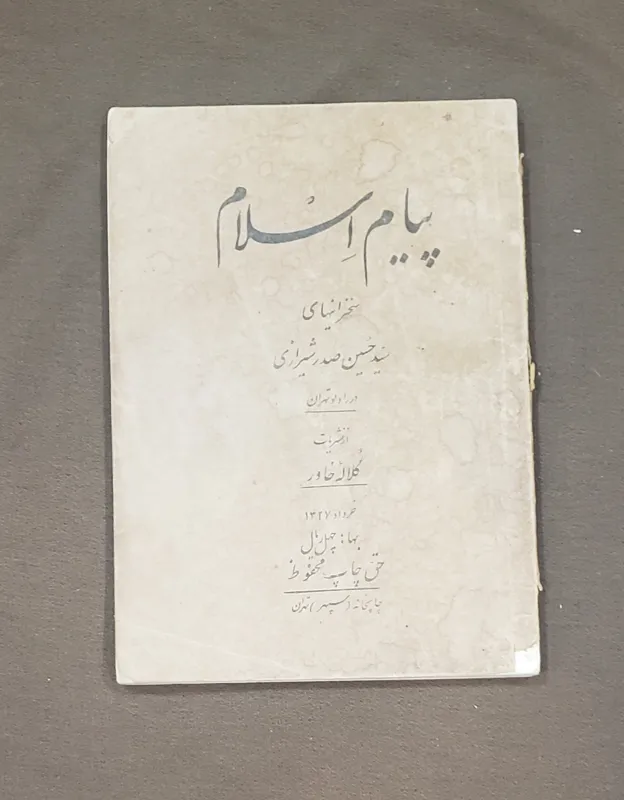 پیام اسلام
سخنرانیهای
سید حسین صدر شیرازی
در رادیو تهران
از نشریات
کلاله خاور
خرداد ۱۳۲۷
بها: چهل ریال
حق چاپ محفوظ
چاپخانه (سپهر) تهران